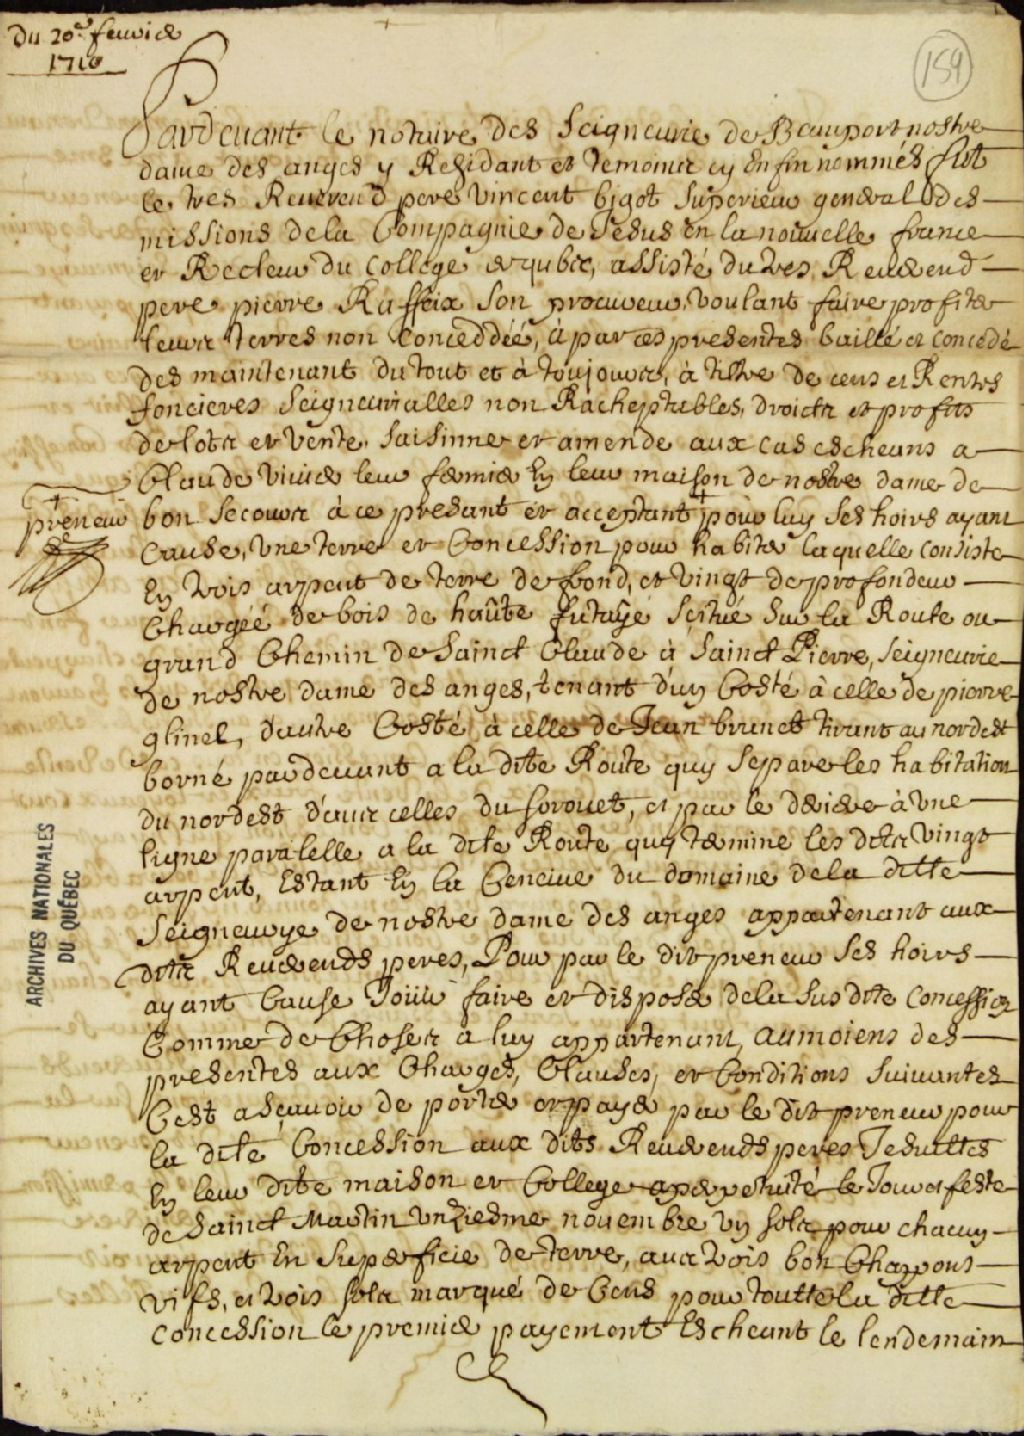 Du 20e feuvrier
1710
159
Pardeuant le notaire des Seigneurie de Beauport nostre
dame des anges y Residant et temoins cy enfin nommés fut
le tres Reuerend pere Vincent bigot Superieur general des
missions dela Compagnie de Jesus en la nouuelle france
et Recteur du College de qubec, assisté du tres Reuerend
pere pierre Raffeix son procureur, voulant faire profiter
leurs terres non Conceddéé, à par ces presentes baillé et concedé
des maintenant du tout et à toujours, à titre de cens et Rentes
foncieres Seigneurialles non Racheptables, droicts et profits
de lots et vente saisinne et amende aux cas escheans a
Claude viuier leur fermier En leur maison de nostre dame de
preneur
bon Secours à ce presant et acceptant + pour luy ses hoirs ayant
Cause, vne terre et Concession pour habiter laquelle consiste
En trois arpent de terre de frond, et vingt de profondeur
Chargéé de bois de haûte futaÿe scitué sur la Route ou
grand Chemin de Sainct Claude à Sainct Pierre, Seigneurie
de nostre dame des anges, tenant d'un Costé à celle de pierre
glinel, d'autre Costé à celle de Jean brunet tirant au nordest
borné pardeuant a la dite Route quy separe les habitation
du nordest d'auec celles du sorouet, et par le deriere à vne
ligne paralelle a la dite Route quy termine les dits vingt
arpent, Estant En la Censiue du domaine dela ditte
Seigneurye de nostre dame des anges appartenant aux
dits Reuerends peres, Pour par le dit preneur ses hoirs
ayant Cause Joüir faire et disposer dela sus dite Concession
Comme de Choses à luy appartenant, aumoiens des
presentes aux Charges, Clauses, et Conditions suiuantes
Cest asçauoir de porter et payer par le dit preneur pour
la dite Concession aux dits Reuerends peres Jesuittes
En leur dite maison et College aperpetuité le Jour et feste
de Sainct Martin vnziesme nouembre vn sols pour chacun
arpent En superficie de terre, auec trois bon Chapons
vifs, et trois sols marqué de Cens pour toutte la ditte
Concession le premier payement Escheant le lendemain
ARCHIVES NATIONALES
DU QUÉBEC